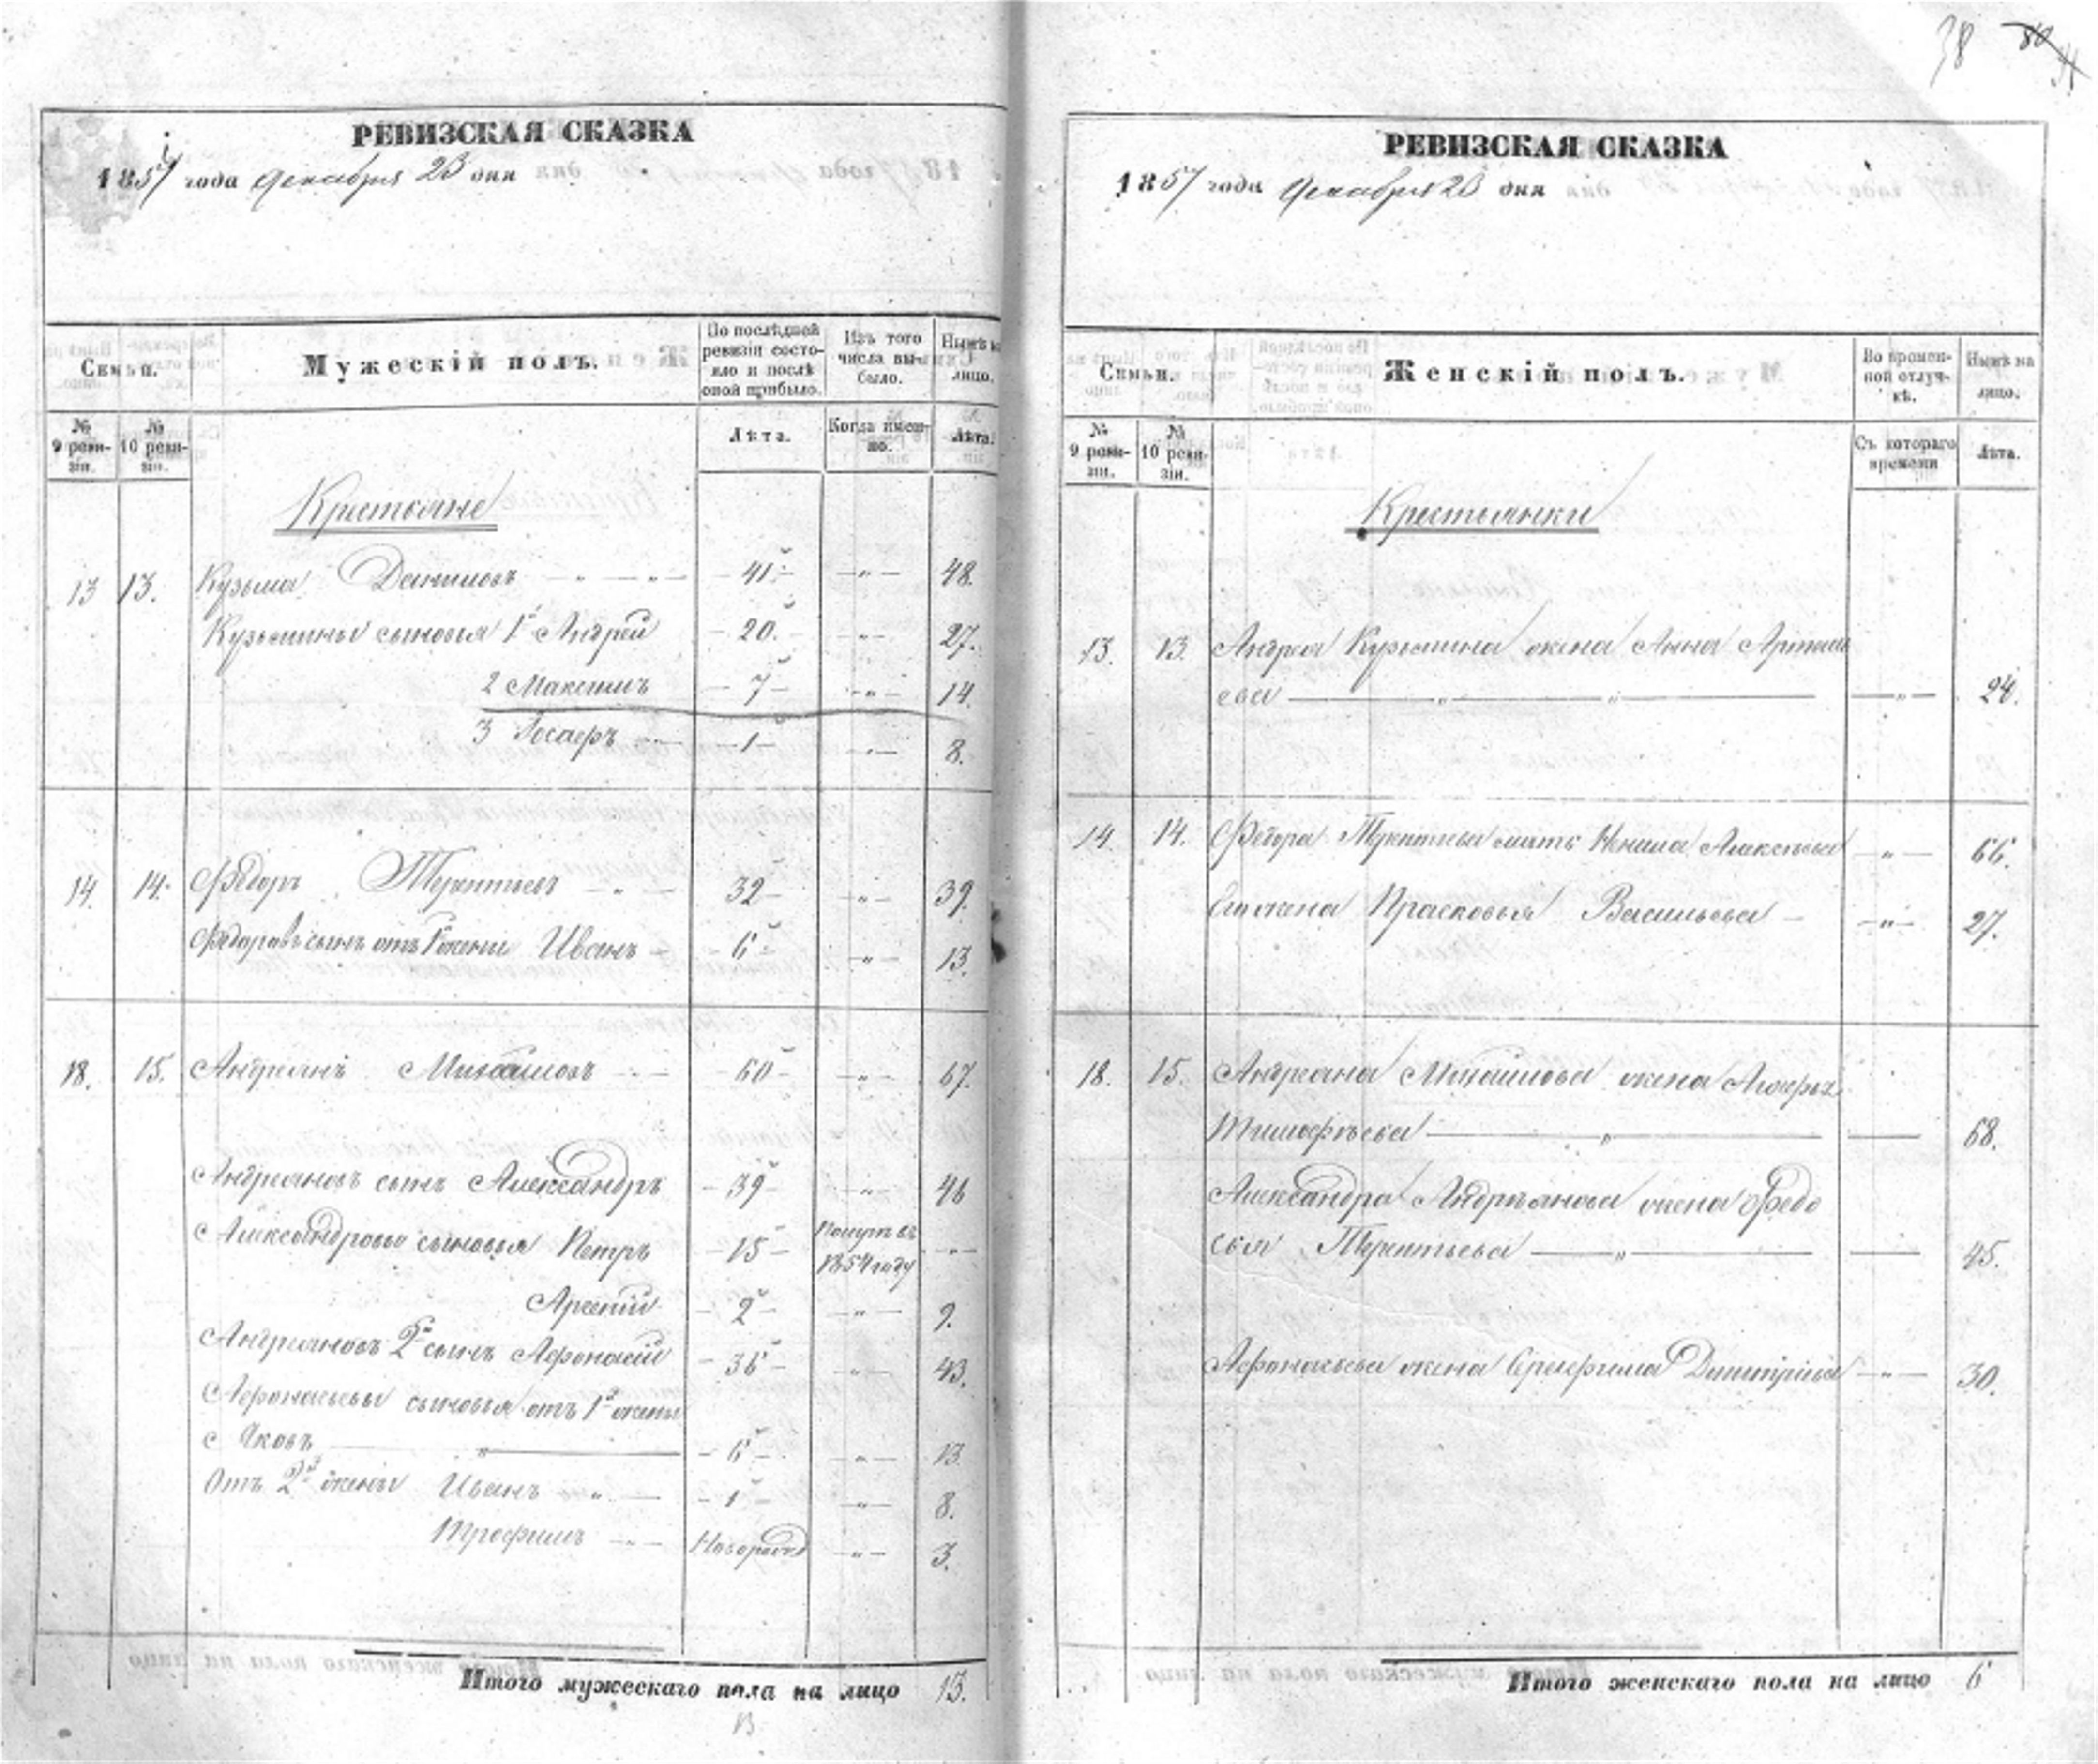 38 80
РЕВИЗСКАЯ СКАЗКА
1857 года Декабря 23 дня
Семьи. Мужескій полъ. По послѣдней ревизіи состояло и послѣ оной прибыло. Изъ того числа выбыло. Нынѣ на лицо.
№ 9 ревизіи. № 10 ревизіи. Лѣта. Когда именно. Лѣта.
Крестьяне
13 13. Кузьма Даниловъ 41 48.
Кузьмины сыновья 1й Андрей 20. 27.
2 Максимъ 7 14.
3 1 8.
14. 14. Ѳедоръ Терентьевъ 32 39.
Ѳедоровъ сынъ отъ 1й жены Иванъ 6 13.
18. 15. Андреянъ Михайловъ 60 67.
Андреяновъ сынъ Александръ 39 46
Александровы сыновья Петръ 15 въ
1854 году
Арсеній 2 9.
Андреяновъ 2й сынъ Афонасій 36 43.
Афонасьевы сыновья отъ 1й жены
Яковъ 6 13
Отъ 2й жены Иванъ 1 8.
Трофимъ 3.
Итого мужескаго пола на лицо 13.
13
РЕВИЗСКАЯ СКАЗКА
1857 года Декабря 23 дня
Семьи. Женскій полъ. Во временной отлучкѣ. Нынѣ на лицо.
№ 9 ревизіи. № 10 ревизіи. Съ котораго времени Лѣта.
Крестьянки
13. 13. Андрея Кузьмина жена Анна Артемь
ева 24.
14 14. Ѳедора Терентьева мать Ненила Алексеева 66.
Его жена Прасковья Васильева 27.
18. 15. Андреяна Михайлова жена
Тимофѣева 68.
Александра Андреянова жена Ѳедо
сья Терентьева 45.
Афонасьева жена Серафима Дмитріева 30.
Итого женскаго пола на лицо 6